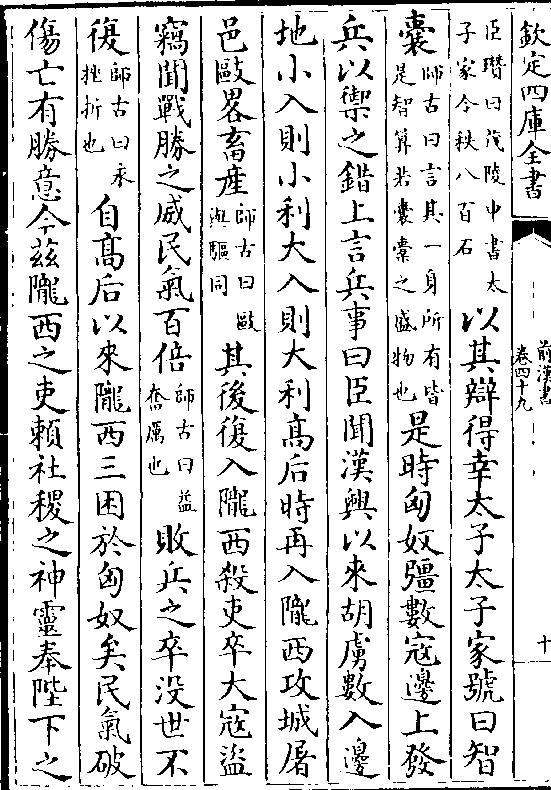 欽定四庫全書
前漢書
卷四十九
十
臣瓚曰茂陵中書太
子家令秩八百石
以其辯得幸太子太子家號曰智
囊
師古曰言其一身所有皆
是智算若囊橐之盛物也
是時匈奴彊數寇邊上發
兵以禦之錯上言兵事曰臣聞漢興以來胡虜數入邊
地小入則小利大入則大利高后時再入隴西攻城屠
邑敺畧畜產
師古曰敺
與驅同
其後復入隴西殺吏卒大寇盜
竊聞戰勝之威民氣百倍
師古曰益
奮厲也
敗兵之卒没世不
復
師古曰永
挫折也
自高后以來隴西三困於匈奴矣民氣破
傷亡有勝意今茲隴西之吏賴社稷之神靈奉陛下之